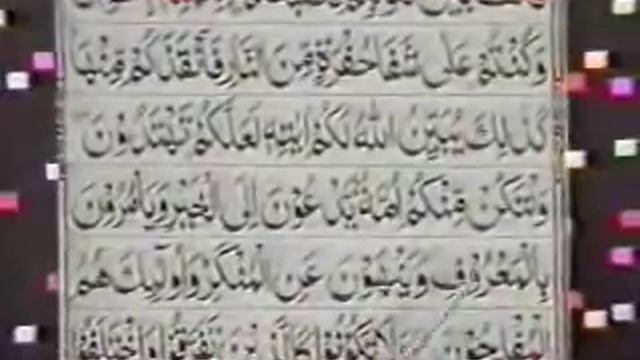 وَكُنْتُمْ عَلٰى شَفَا حُفْرَةٍ مِّنَ النَّارِ فَاَنْقَذَكُمْ مِّنْهَا
كَذٰلِكَ يُبَيِّنُ اللّٰهُ لَكُمْ اٰيٰتِهٖ لَعَلَّكُمْ تَهْتَدُوْنَ
وَلْتَكُنْ مِّنْكُمْ اُمَّةٌ يَّدْعُوْنَ اِلَى الْخَيْرِ وَيَاْمُرُوْنَ
بِالْمَعْرُوْفِ وَيَنْهَوْنَ عَنِ الْمُنْكَرِ وَاُولٰٓئِكَ هُمُ
الْمُفْلِحُوْنَ وَلَا تَكُوْنُوْا كَالَّذِيْنَ تَفَرَّقُوْا وَاخْتَلَفُوْا